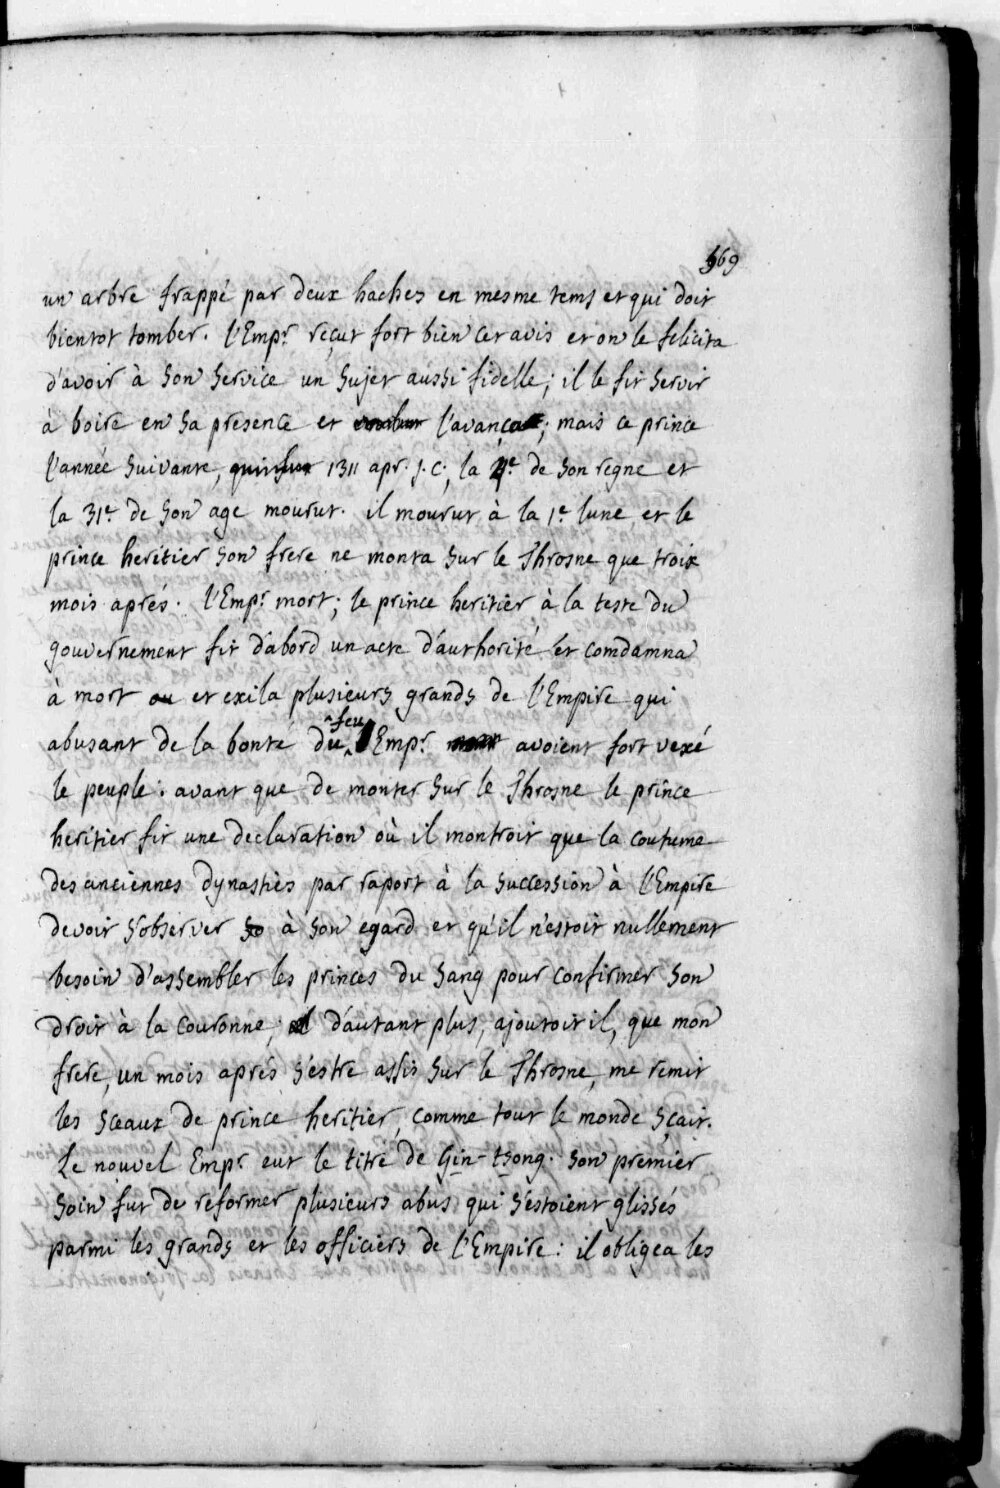 569
un arbre frappé par deux haches en mesme tems et qui doit
bientot tomber. l'Emp.r reçut fort bien cet avis et on le felicita
d'avoir à son service un sujet aussi fidelle; il le fit servir
à boire en sa presence et l'avança; mais ce prince
l'année suivante, 1311 apr. J. C; la 4.e de son regne et
la 31.e de son age mourut. il mourut à la 1.e lune et le
prince heritier son frere ne monta sur le Throsne que trois
mois aprés. l'Emp.r mort; le prince heritier à la teste du
gouvernement fit d'abord un acte d'authorité et comdamna
à mort ou et exila plusieurs grands de l'Empire qui
abusant de la bonte du feu Emp.r avoient fort vexé
le peuple. avant que de monter sur le Throsne le prince
heritier fit une declaration où il montroit que la coutume
des anciennes dynasties par raport à la succession à l'Empire
devoit s'observer so à son egard et qu'il n'estoit nullement
besoin d'assembler les princes du sang pour confirmer son
droit à la couronne; d'autant plus, ajoutoit il, que mon
frere, un mois aprés s'estre assis sur le Throsne, me remit
les sceaux de prince heritier, comme tout le monde sçait.
Le nouvel Emp.r eut le titre de Gin-tsong. son premier
soin fut de reformer plusieurs abus qui s'estoient glissés
parmi les grands et les officiers de l'Empire: il obligea les